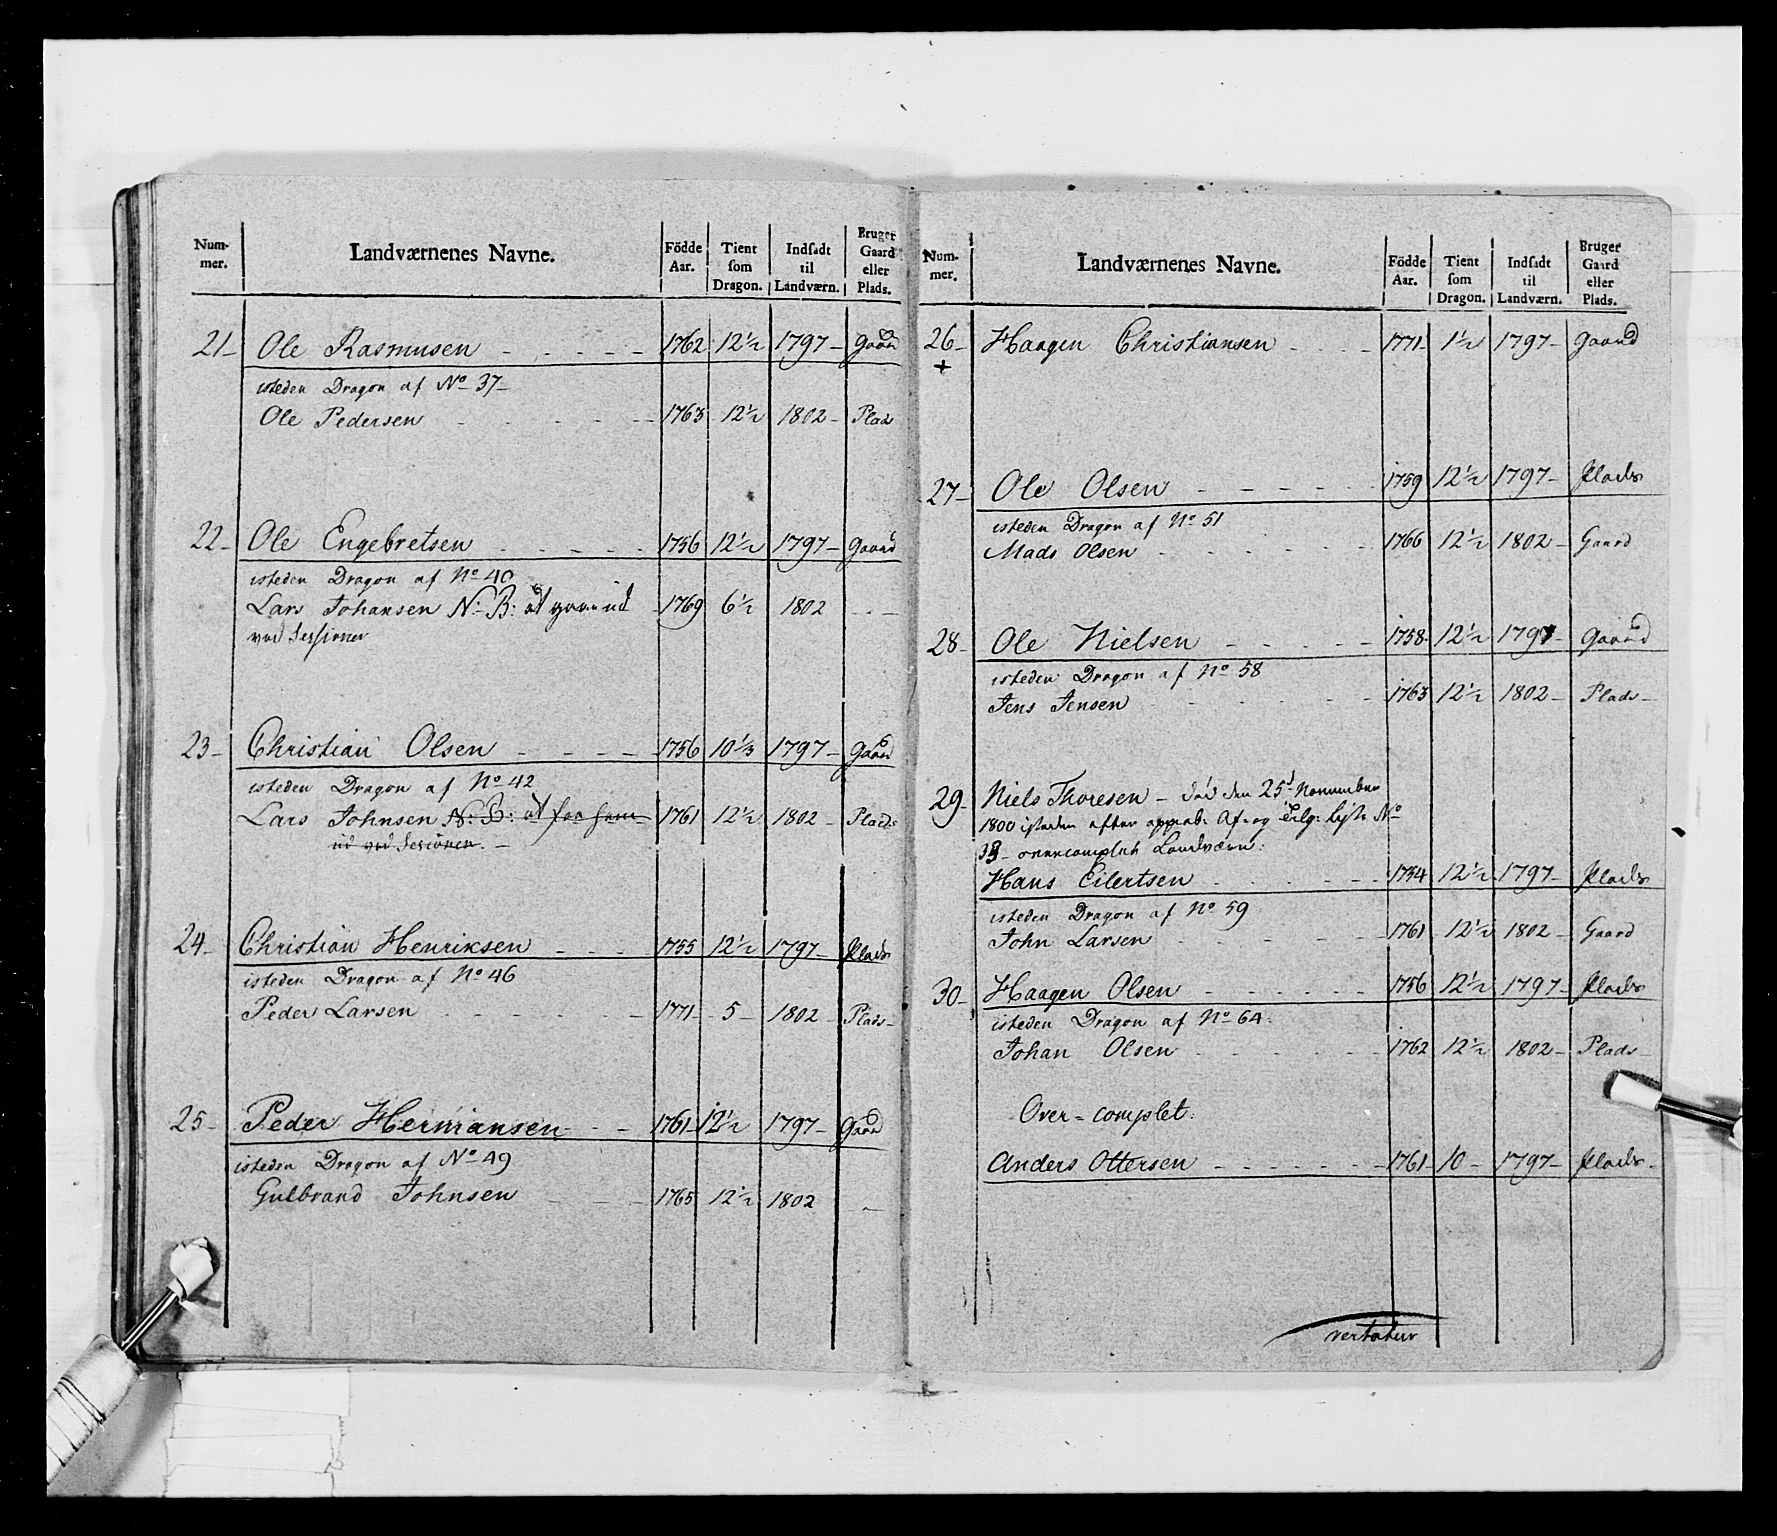 Num-mer. Landværnenes Navne. Födde Aar. Tient som Dragon. Indsadt til Landværn. Bruger Gaard eller Plads.
21- Ole Rasmusen - - - - - 1762 12½ 1797- Gaard
isteden Dragon af No 37-
Ole Pedersen - - - - - 1763 12½ 1802- Plads
22- Ole Engebretsen - - - - - 1756 12½ 1797- Gaard
isteden Dragon af No 40
Lars Johansen N: B: at gaae ud 1769 6½ 1802 - -
ved Sessionen
23- Christian Olsen - - - - 1756 10⅓ 1797- Gaard
isteden Dragon af No 42
Lars Johnsen N: B: at faa ham 1761 12½ 1802- Plads
ud ved Sesionen. -
24- Christian Henriksen - - - 1755 12½ 1797- Plads
isteden Dragon af No 46
Peder Larsen - - - - - 1771- 5- 1802- Plads-
25- Peder Hermansen - - - 1761 12½ 1797- Gaard
isteden Dragon af No 49
Gulbrand Johnsen - - - 1765 12½ 1802 -
Num-mer. Landværnenes Navne. Födde Aar. Tient som Dragon. Indsadt til Landværn. Bruger Gaard eller Plads.
26- Haagen Christiansen - - - 1771- 1½ 1797- Gaard
+
27- Ole Olsen - - - - - 1759 12½ 1797- Plads
isteden Dragon af No 51
Mads Olsen - - - - - 1766 12½ 1802- Gaard
28- Ole Nielsen - - - - - 1758- 12½ 1797- Gaard
isteden Dragon af No 58
Jens Jensen - - - - - 1763 12½ 1802- Plads-
29- Niels Thoresen - död den 25d November
1800 isteden efter approb: Af- og Tilg: Liste No
33- overcomplet Landværn:
Hans Eilertsen - - - - - 1754 12½ 1797- Plads
isteden Dragon af No 59
John Larsen - - - - - 1761 12½ 1802- Gaard
30- Haagen Olsen - - - - - 1756 12½ 1797- Plads
isteden Dragon af No 64.
Johan Olsen - - - - - 1762 12½ 1802- Plads-
Over-complet:
Anders Ottersen - - - - - 1761- 10- 1797- Plads-
vertatur